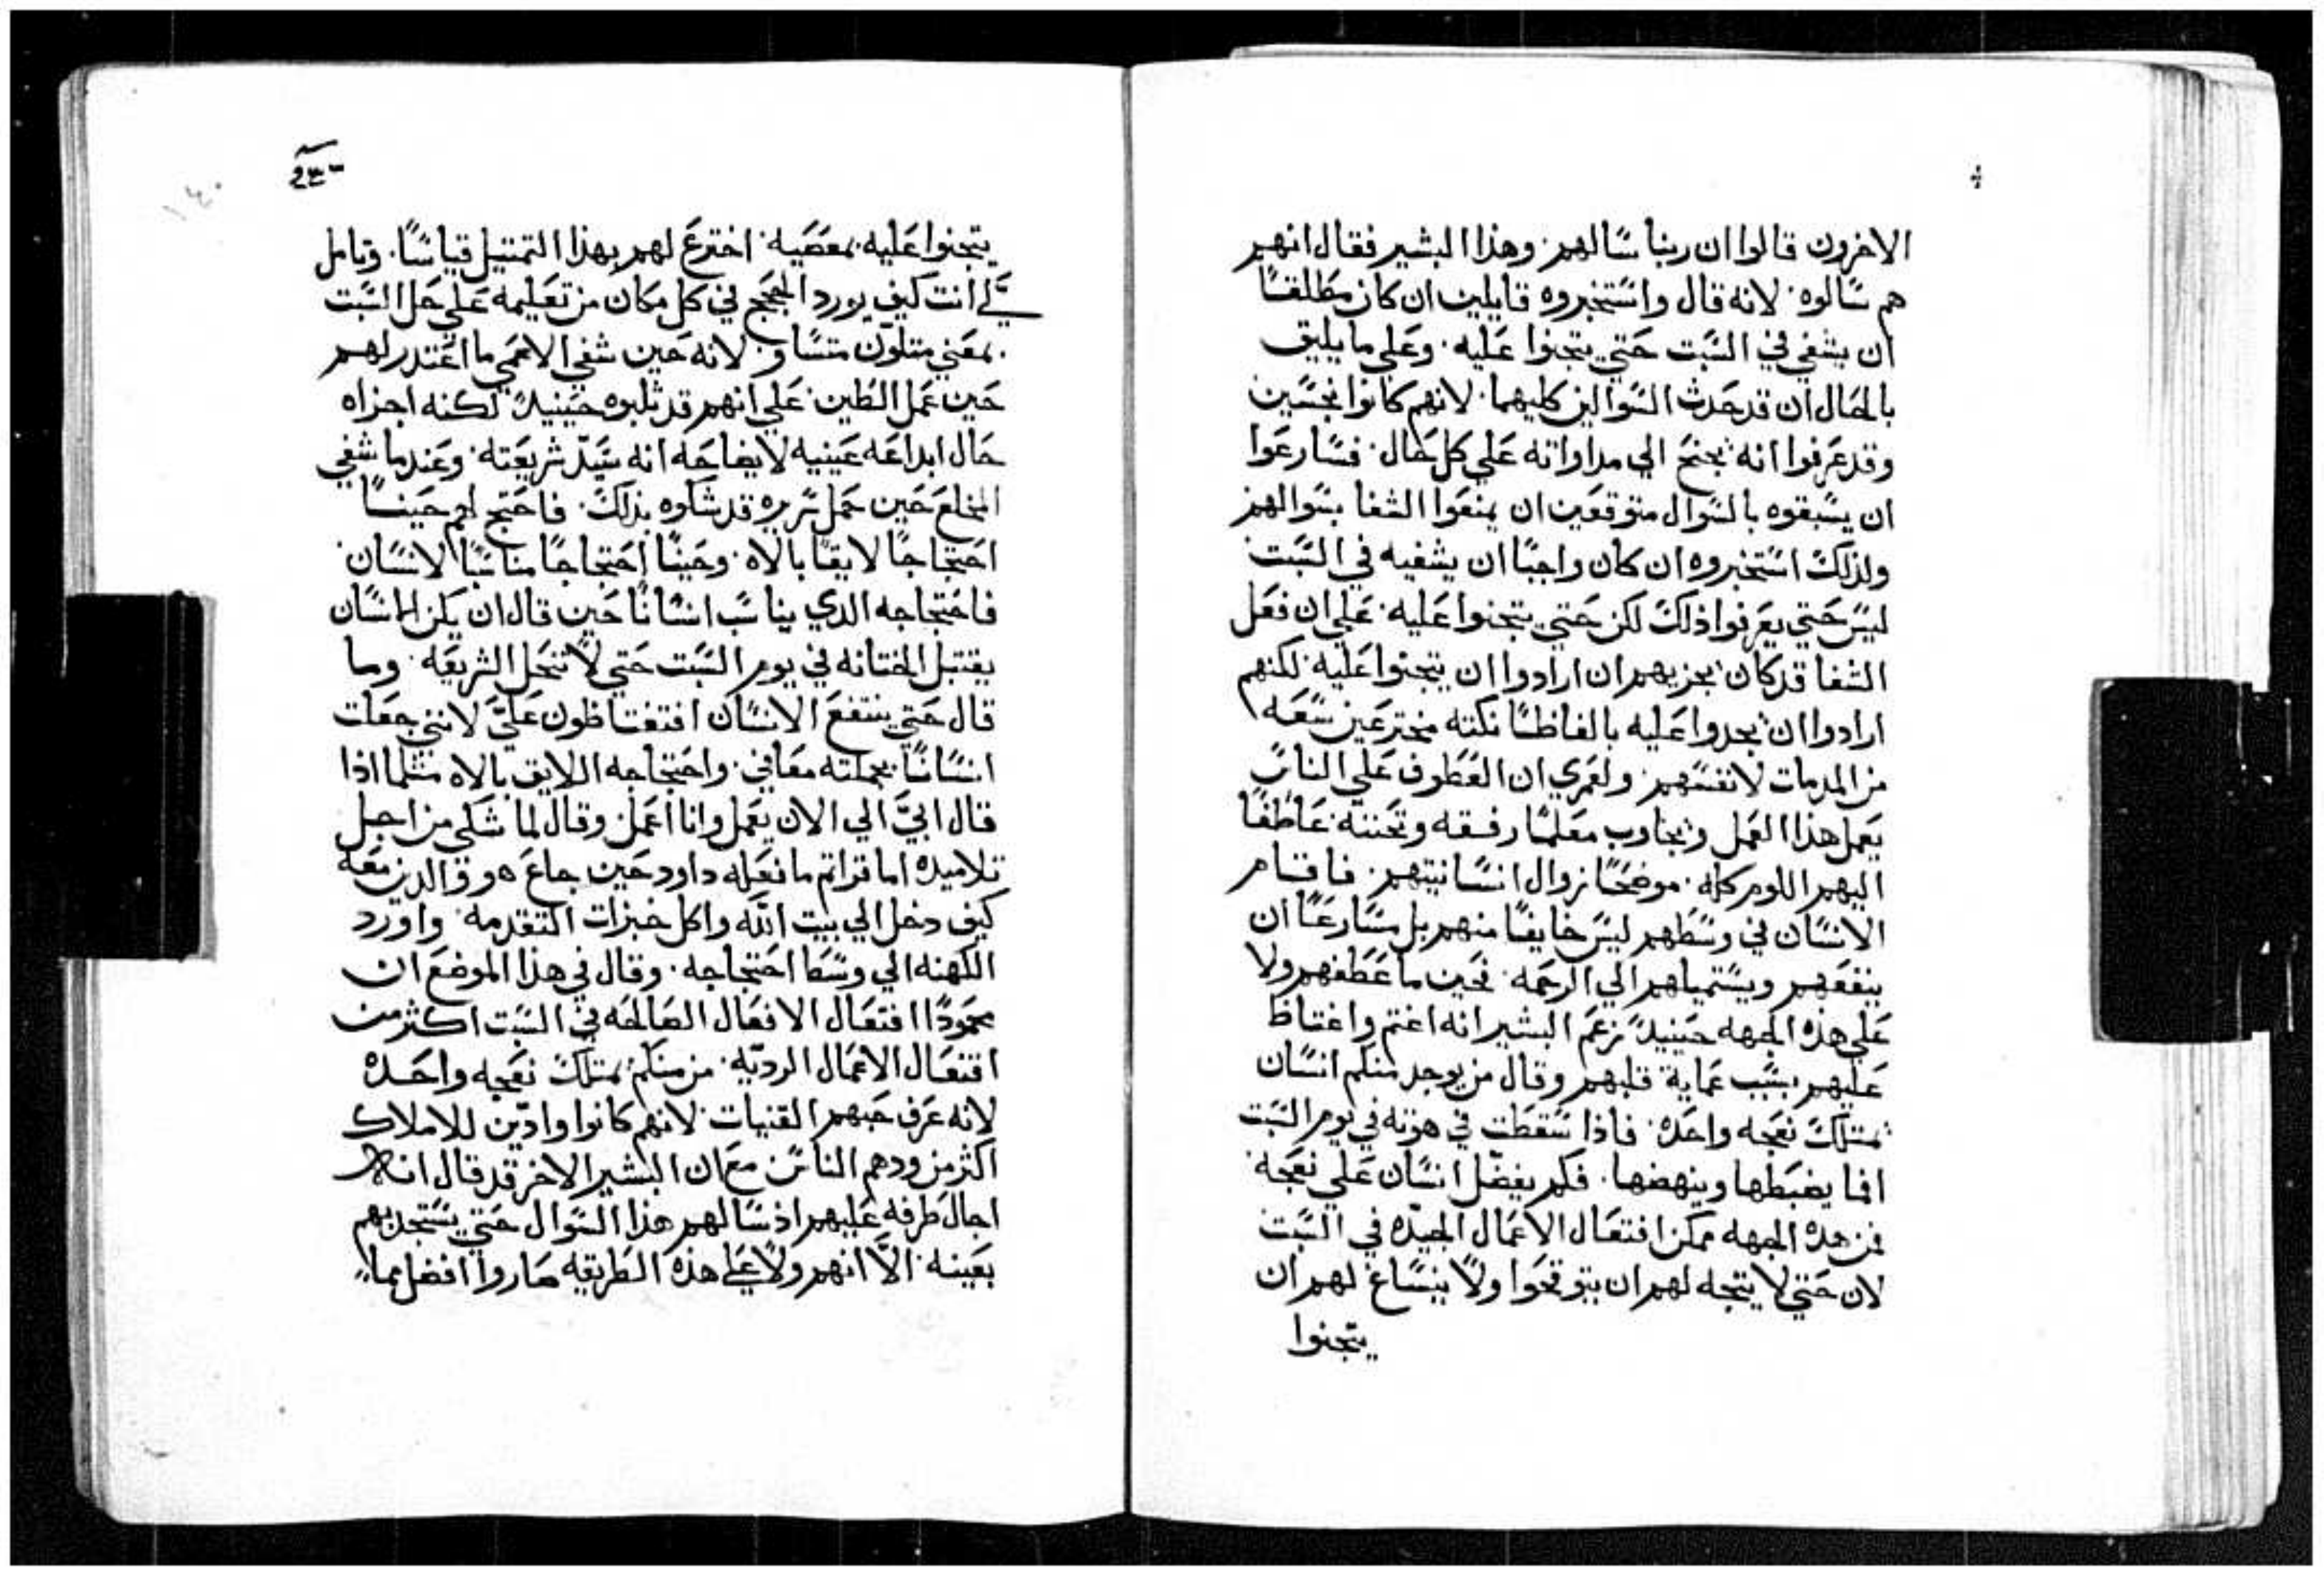 الاخرون قالوا ان ربنا سالهم. وهذا البشير فقال انهم
هم سالوه. لانه قال واستخبروه قايلين ان كان مطلقا
ان يشفي في السبت حتي يتجنوا عليه. وعلي ما يليق
بالحال ان قد حدث السوالين كليهما. لانهم كانوا نجسين
وقد عرفوا انه يجنح الي مداواته علي كل حال. فسارعوا
ان يسبقوه بالسوال متوقعين ان يمنعوا الشفا بسوالهم
ولذلك استخبروه ان كان واجبا ان يشفيه في السبت
ليس حتي يعرفوا ذلك لكن حتي يتجنوا عليه. علي ان فعل
الشفا قد كان يجزيهم ان ارادوا ان يتجنوا عليه. لكنهم
ارادوا ان يجدوا عليه بالفاظا نكته مخترعين سعه
من المذمات لانفسهم. ولعمري ان العطوف علي الناس
يعمل هذا العمل ويجاوب معلما رفقه وتحننه عاطفا
اليهم اللوم كله. موضحا زوال انسانيتهم. فاقام
الانسان في وسطهم ليس خايفا منهم بل مسارعا ان
ينفعهم ويستميلهم الي الرحمه. فحين ما عطفهم ولا
علي هذه الجهه حينيذ زعم البشير انه اغتم واغتاظ
عليهم بسبب عماية قلبهم وقال من يوجد منكم انسان
يمتلك نعجه واحده. فاذا سقطت في هوته في يوم السبت
افما يضبطها وينهضها. فكم يفضل انسان علي نعجه
فمن هذه الجهه ممكن افتعال الاعمال الجيده في السبت
لان حتي لا يتجه لهم ان يتوقحوا ولا ينساغ لهم ان
يتجنوا
يتجنوا عليه بمعصيه. اخترع لهم بهذا التمثيل قياسا. وتامل
لي انت كيف يورد الحجج في كل مكان من تعليمه علي حل السبت
بمعني متلون متساو. لانه حين شفي الاعمي ما اعتذر لهم
حين عمل الطين. علي انهم قد ثلبوه حينيذ لكنه اجزاه
حال ابداعه عينيه لايضاحه انه سيد شريعته. وعندما شفي
المخلع حين حمل سريره قد شكوه بذلك. فاحتج لهم حينا
احتجاجا لايقا بالاه. وحينا احتجاجا مناسبا لانسان.
فاحتجاجه الذي يناسب انسانا حين قال ان يكن انسان
يقتبل الختانه في يوم السبت حتي لا تنحل الشريعه. وما
قال حتي ينتفع الانسان افتغتاظون علي لانني جعلت
انسانا بجملته معافي. واحتجاجه اللايق بالاه مثلما اذا
قال ابي الي الان يعمل وانا اعمل. وقال لما شكي من اجل
تلاميذه اما قراتم ما فعله داود حين جاع هو والذين معه
كيف دخل الي بيت الله واكل خبزات التقدمه. واورد
الكهنه الي وسط احتجاجه. وقال في هذا الموضع ان
محمودا افتعال الافعال الصالحه في السبت اكثر من
افتعال الاعمال الرديه. من منكم يمتلك نعجه واحده
لانه عرف حبهم القنيات. لانهم كانوا وادين للاملاك
اكثر من ودهم الناس. مع ان البشير الاخر قد قال انه
اجال طرفه عليهم اذ سالهم هذا السوال حتي يستجذبهم
بعينه. الا انهم ولا علي هذه الطريقه صاروا افضل مما